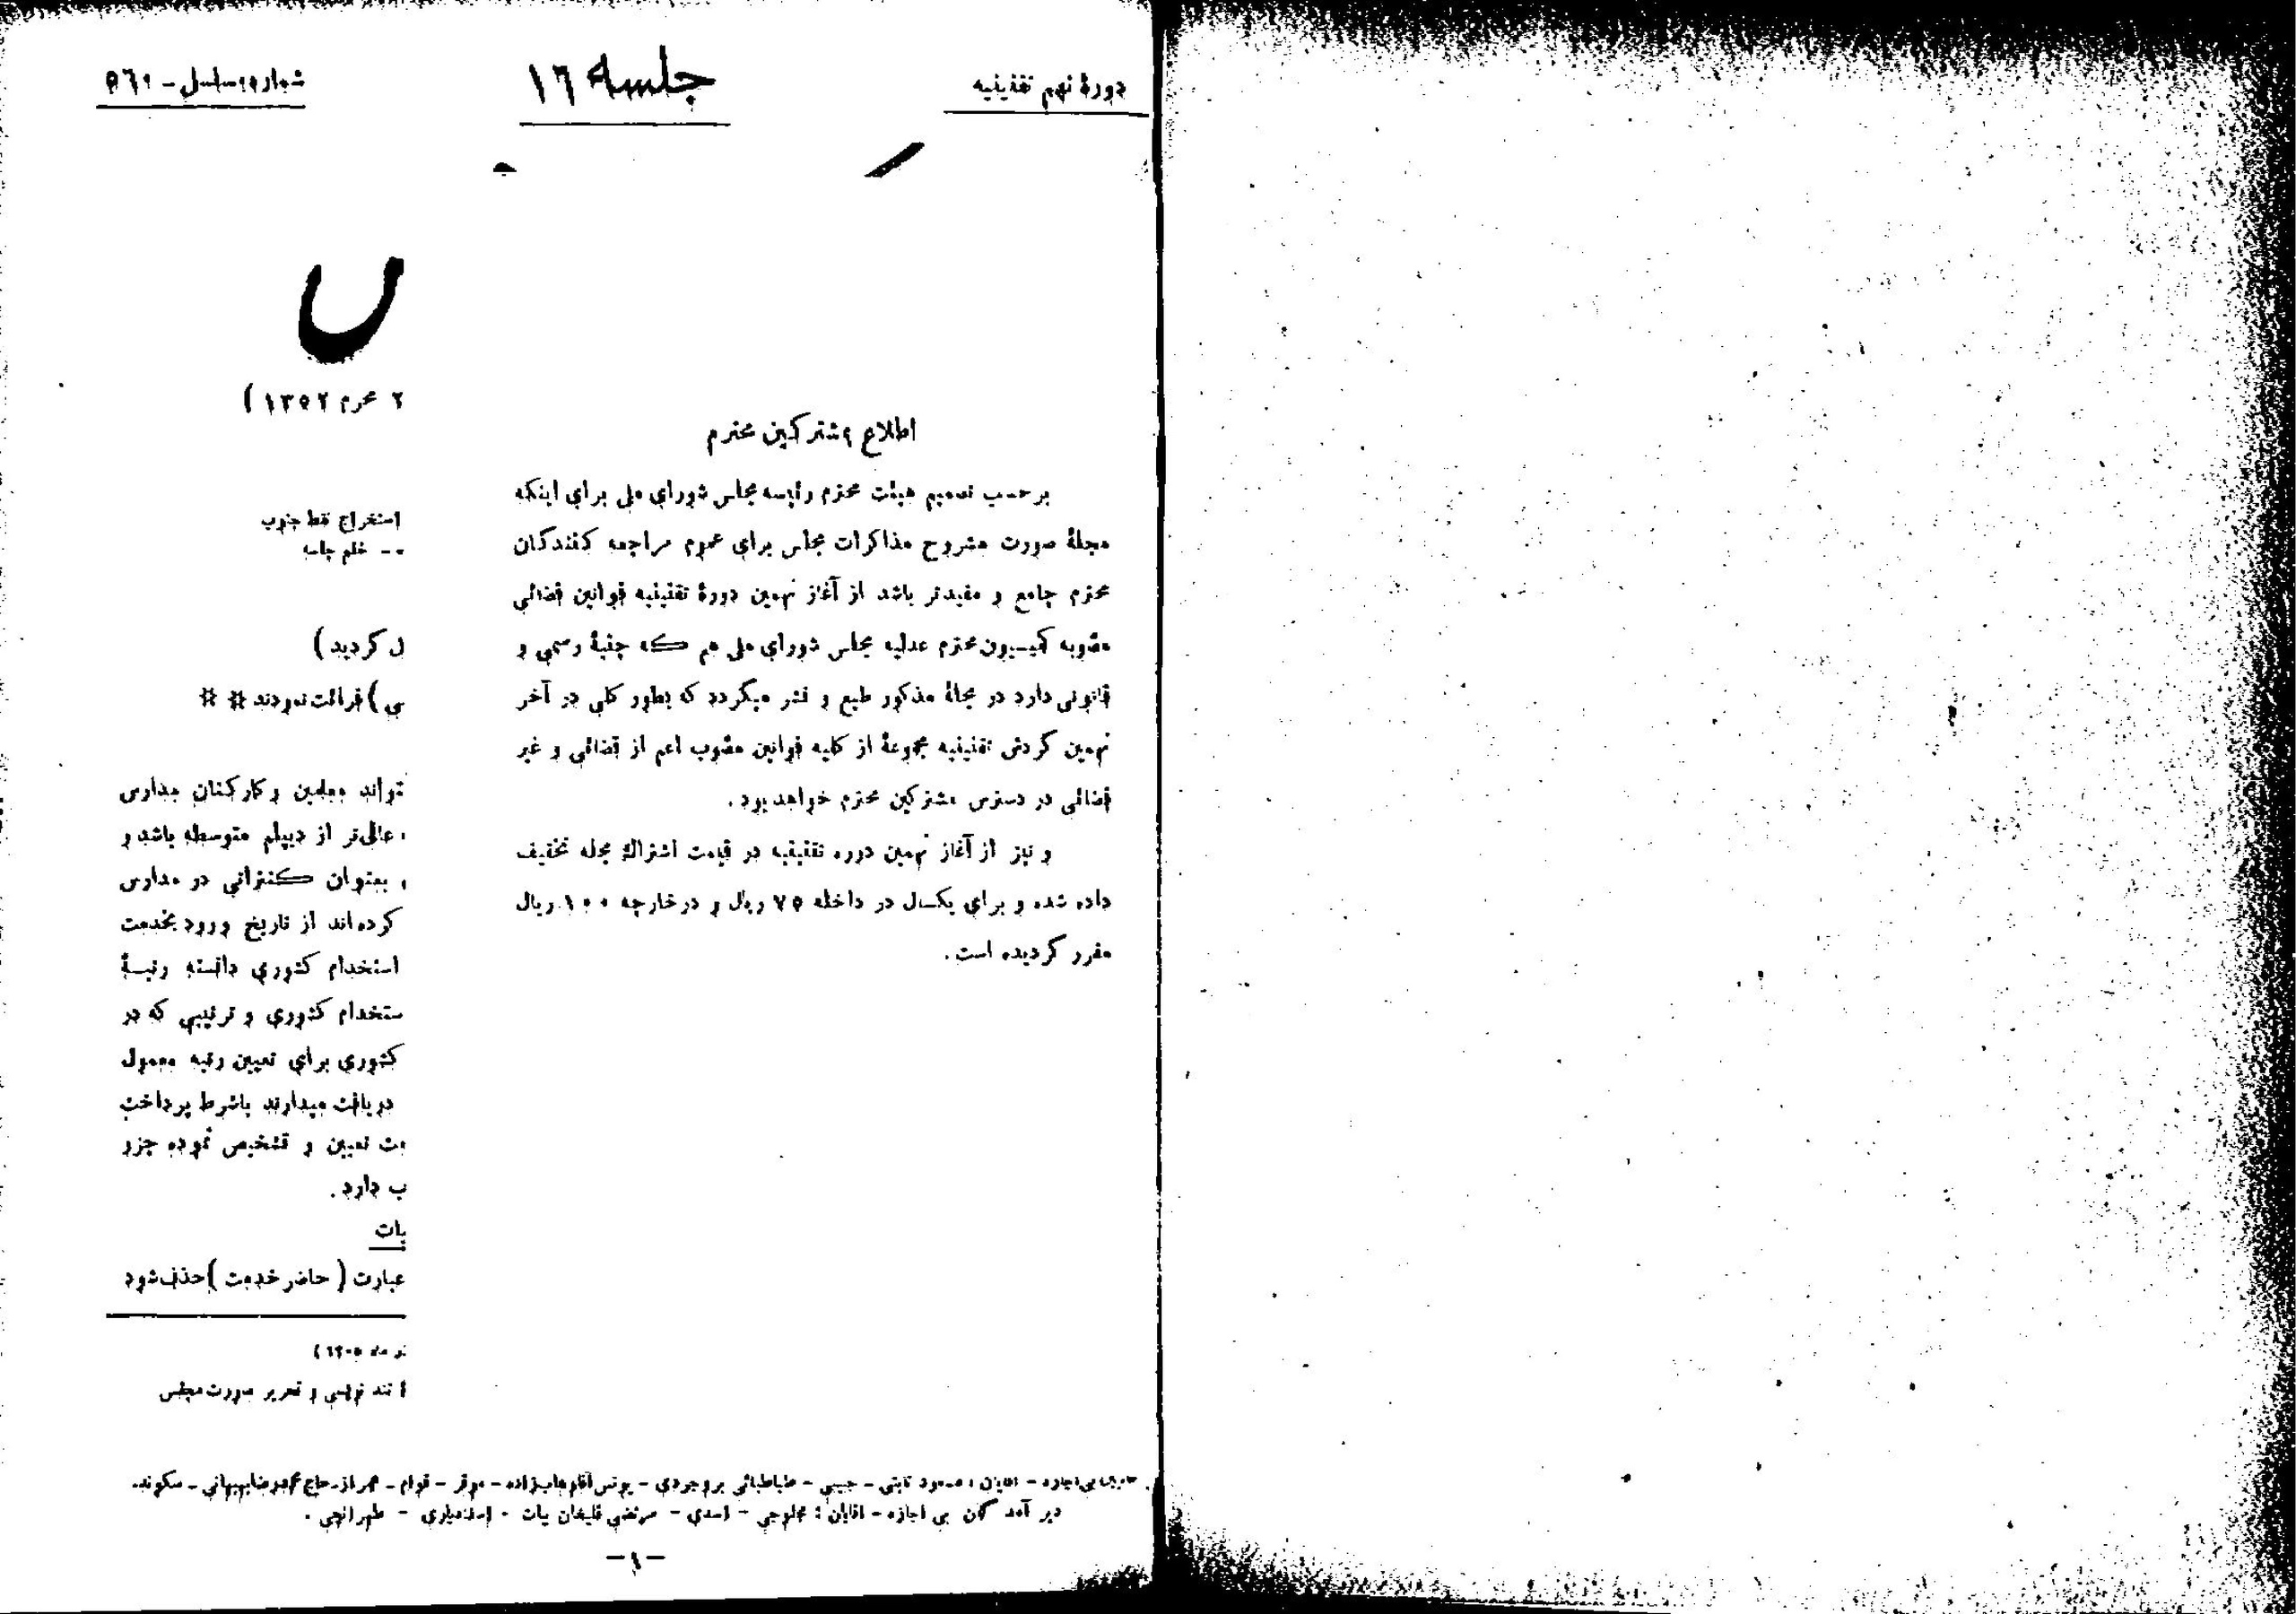 دورهٔ نهم تقنینیه
جلسه ١٦
شماره مسلسل -
اطلاع مشترکین محترم
برحسب تصمیم هیئت محترم رئیسه مجلس شورای ملی برای اینکه
مجلهٔ صورت مشروح مذاکرات مجلس برای عموم مراجعه کنندگان
محترم جامع و مفیدتر باشد از آغاز نهمین دورهٔ تقنینیه قوانین قضائی
مصوبه کمیسیون محترم عدلیه مجلس شورای ملی هم که جنبهٔ رسمی و
قانونی دارد در مجلهٔ مذکور طبع و نشر میگردد که بطور کلی در آخر
نهمین گردش تقنینیه مجموعهٔ از کلیه قوانین مصوب اعم از قضائی و غیر
قضائی در دسترس مشترکین محترم خواهد بود.
و نیز از آغاز نهمین دوره تقنینیه در قیمت اشتراک مجله تخفیف
داده شده و برای یکسال در داخله ٧٥ ریال و در خارجه ١٠٠ ریال
مقرر گردیده است.
٢ محرم ١٣٥٢)
استخراج نفط جنوب
- ختم جلسه
ل گردید)
سی) قرائت نمودند ⁂ ⁂
تواند معلمین و کارکنان مدارس
عالی‌تر از دیپلم متوسطه باشد و
بعنوان کنتراتی در مدارس
کرده‌اند از تاریخ ورود بخدمت
استخدام کشوری دانسته رتبهٔ
ستخدام کشوری و ترتیبی که در
کشوری برای تعیین رتبه معمول
دریافت میدارند باشرط پرداخت
ت تعیین و تشخیص نموده جزو
ب دارد.
یات
عبارت (حاضر خدمت) حذف شود
ماه ١٣٠٥)
تند نویسی و تحریر صورت مجلس
غایبین بی‌اجازه - آقایان: مسعود ثابتی - حبیبی - طباطبائی بروجردی - یونس آقا وهاب‌زاده - موقر - قوام - همراز - حاج محمدرضا بهبهانی - سکوند.
دیر آمدگان بی اجازه - آقایان: مجلوجی - اسدی - مرتضی قلیخان بیات - اسفندیاری - طهرانچی.
-١-